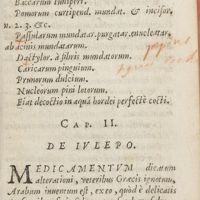 Baccarum Iuniperi.
Pomorum curtipend. mundat. & incisor.
n. 2. 3. &c.
Passularum mundatar. purgatar. enucleatar.
ab acinis mundatarum.
Dactylor. à fibris mundatorum.
Caricarum pinguium.
Prunorum dulcium.
Nucleorum pini lotorum.
Fiat decoctio in aquâ hordei perfectè cocti.
CAP. II.
DE IVLEPO.
MEDICAMENTVM dicatum
alterationi, veteribus Græcis ignotum,
Arabum inuentum est, ex eo, quòd è delicatis